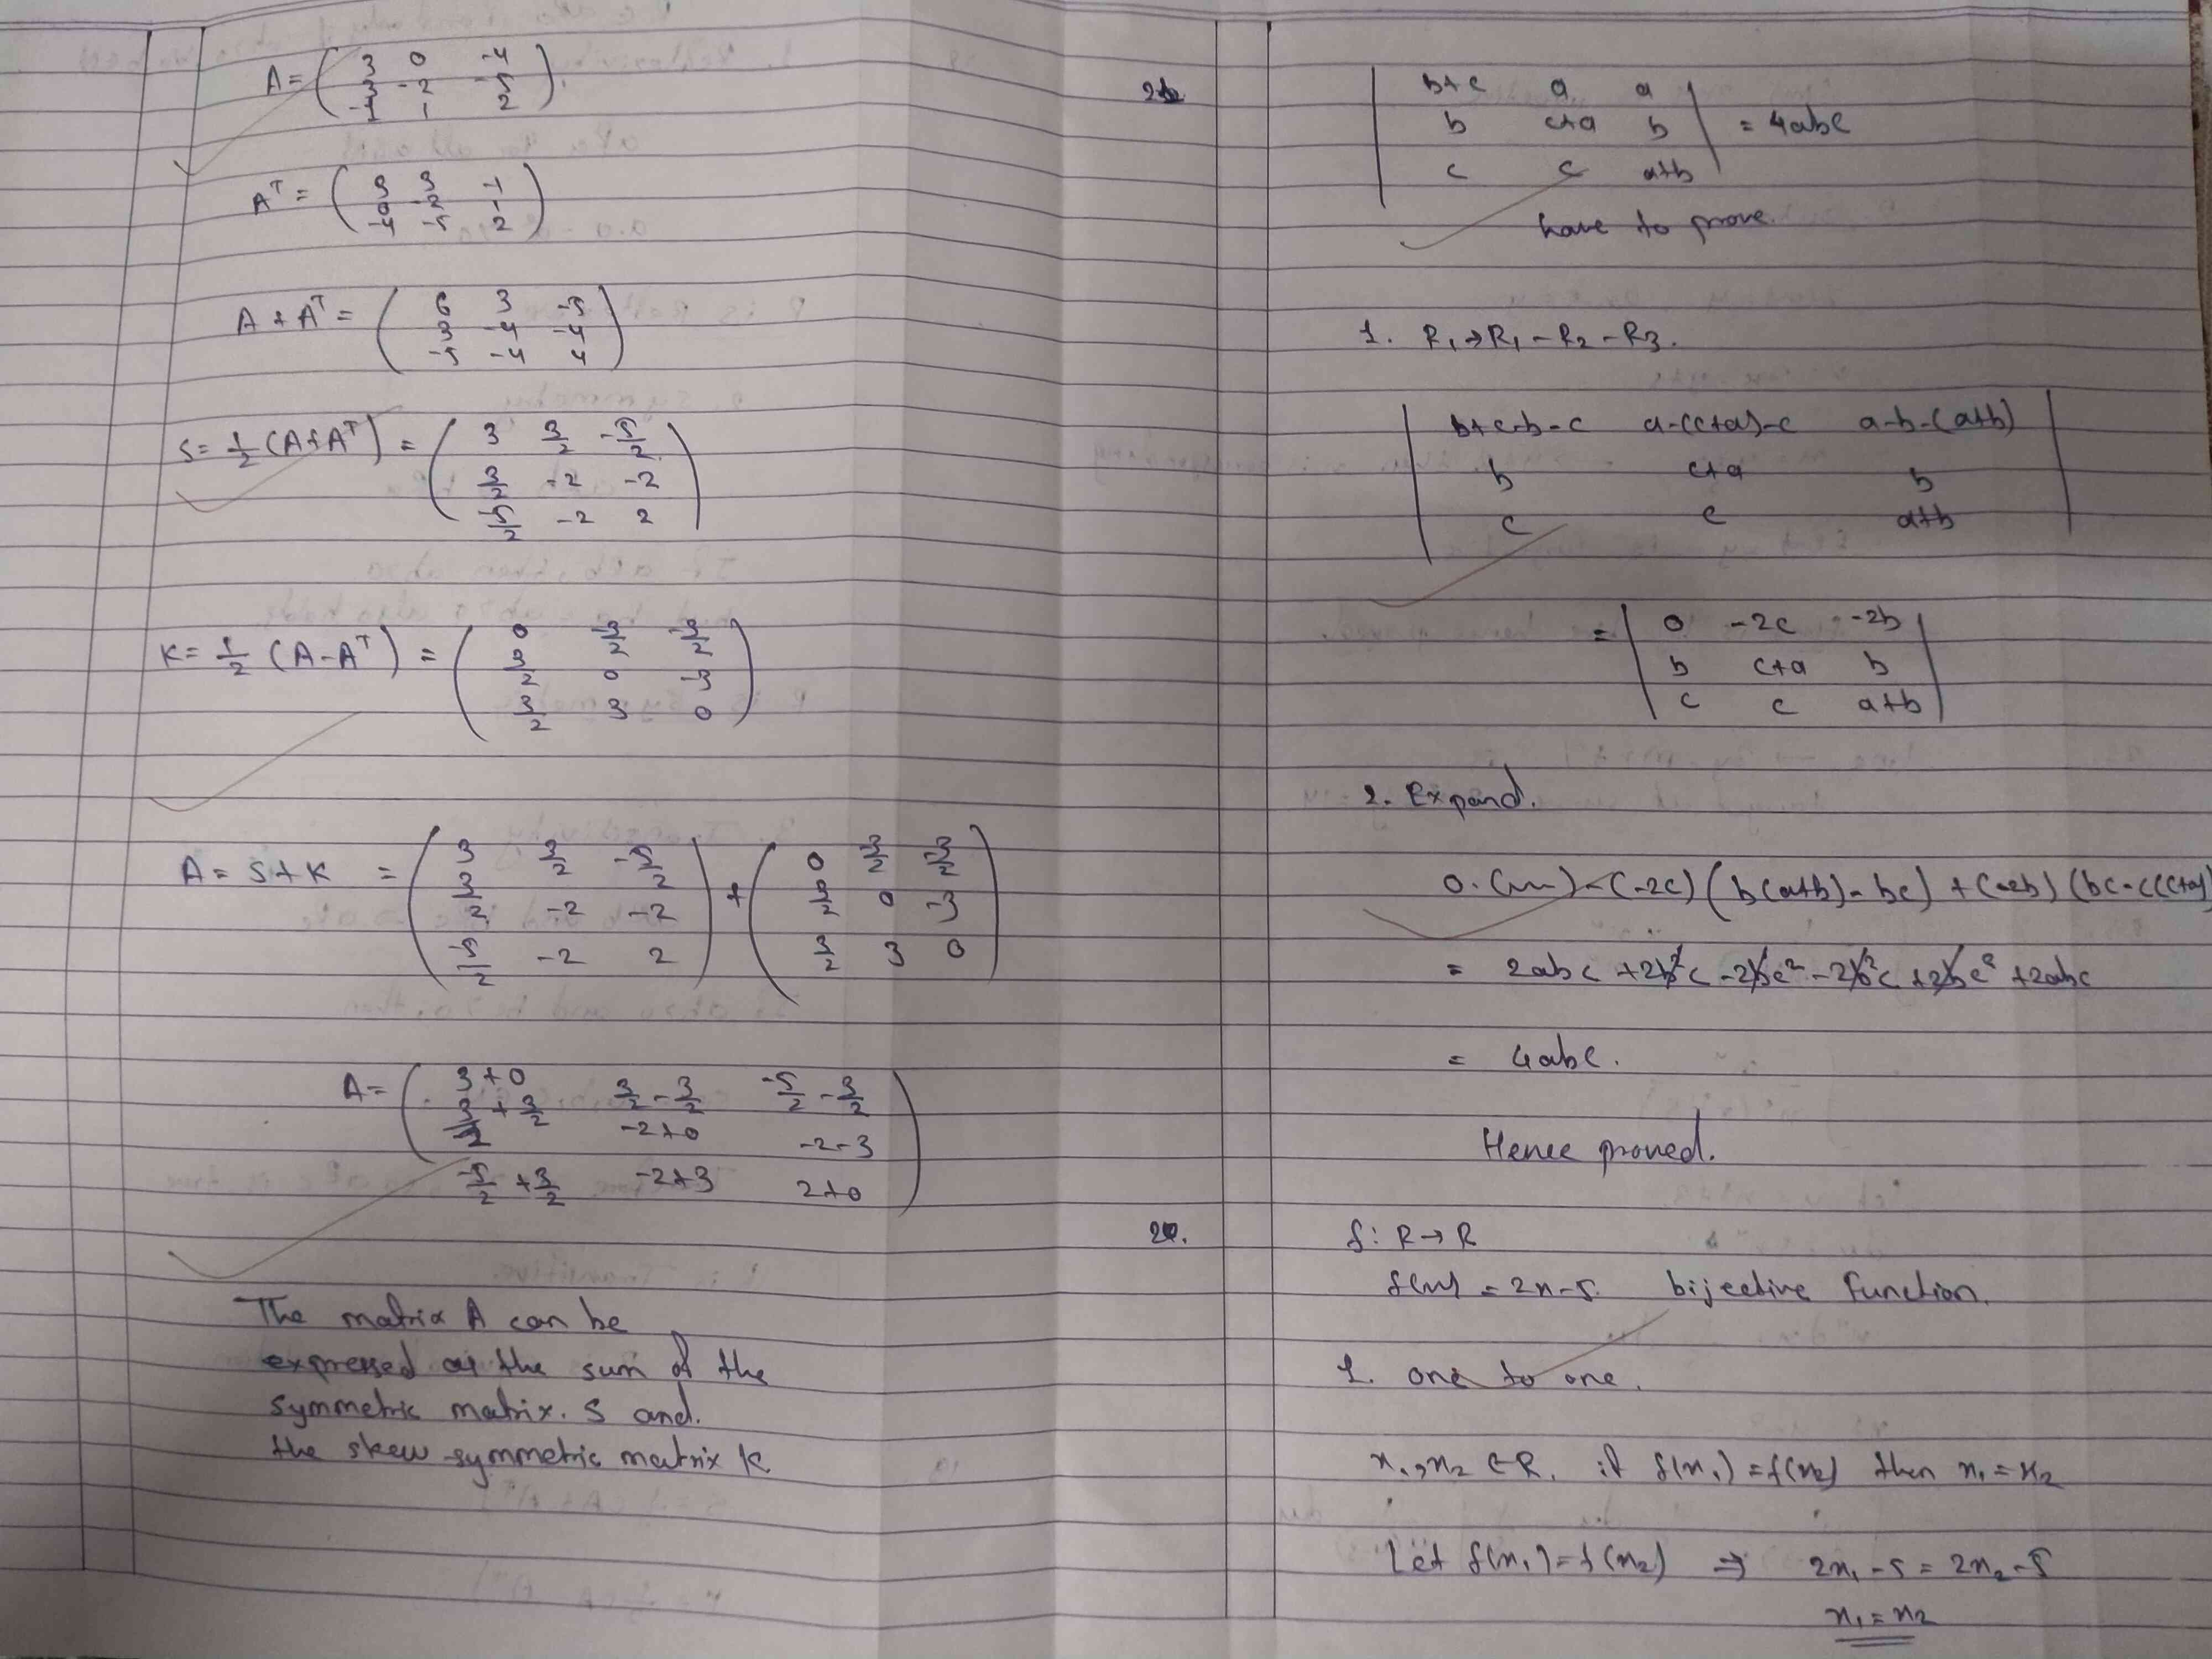 A = ( 3 0 -4
3 -2 -5
-1 1 2 ).
Aᵀ = ( 3 3 -1
0 -2 1
-4 -5 2 )
A + Aᵀ = ( 6 3 -5
3 -4 -4
-5 -4 4 )
S = 1/2 (A+Aᵀ) = ( 3 3/2 -5/2
3/2 -2 -2
-5/2 -2 2 )
K = 1/2 (A-Aᵀ) = ( 0 -3/2 -3/2
3/2 0 -3
3/2 3 0 )
A = S+K = ( 3 3/2 -5/2
3/2 -2 -2
-5/2 -2 2 ) + ( 0 -3/2 -3/2
3/2 0 -3
3/2 3 0 )
A = ( 3+0 3/2 - 3/2 -5/2 - 3/2
3/2 + 3/2 -2+0 -2-3
-5/2 + 3/2 -2+3 2+0 )
The matrix A can be
expressed as the sum of the
symmetric matrix. S and.
the skew symmetric matrix K.
| b+c a a |
| b c+a b | = 4abc
| c c a+b |
have to prove.
1. R₁→R₁-R₂-R₃.
| b+c-b-c a-(c+a)-c a-b-(a+b) |
| b c+a b |
| c c a+b |
= | 0 -2c -2b |
| b c+a b |
| c c a+b |
2. Expand.
0.(~~)-(-2c) (b(a+b)-bc) +(-2b) (bc-c(c+a)
= 2abc +2b²c -2bc² -2b²c +2bc² +2abc
= 4abc.
Hence proved.
f: R→R
f(x) = 2x-5. bijective function.
1. one to one.
x₁,x₂ ∈R. if f(x₁)=f(x₂) then x₁=x₂
Let f(x₁)=f(x₂) ⇒ 2x₁-5=2x₂-5
x₁=x₂